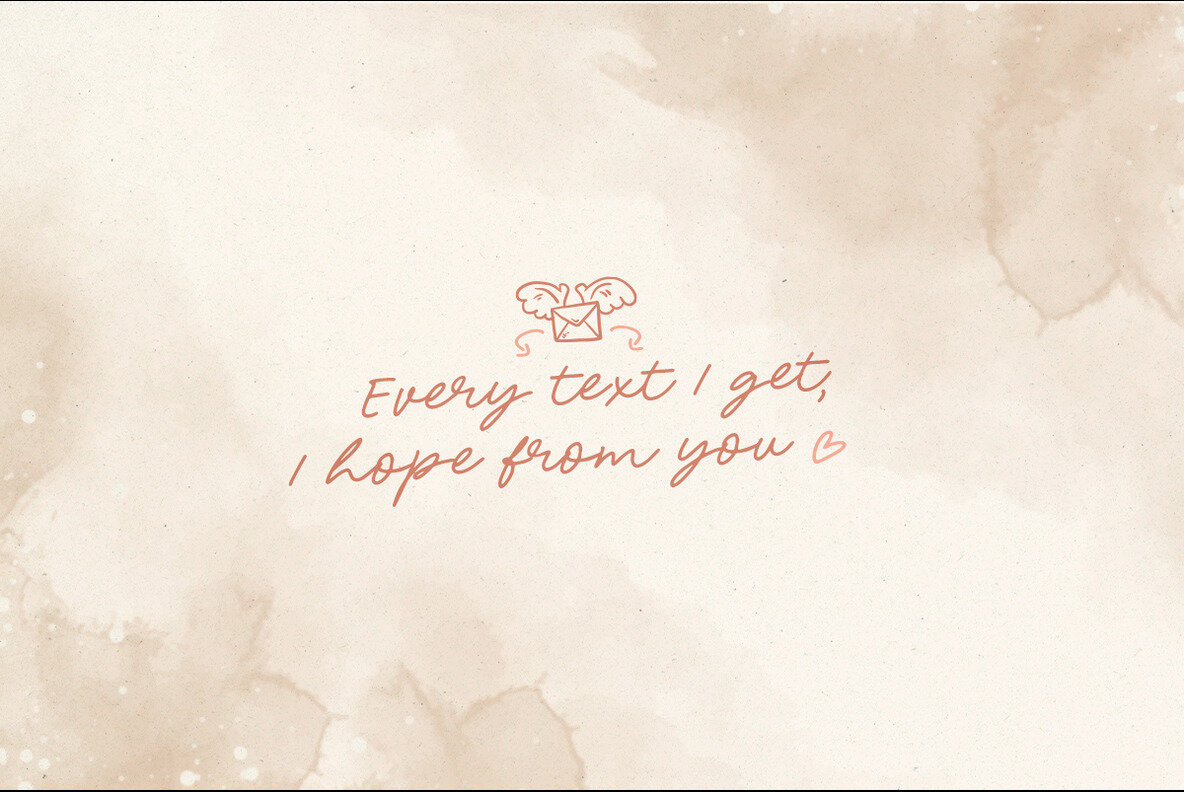 Every text I get,
I hope from you